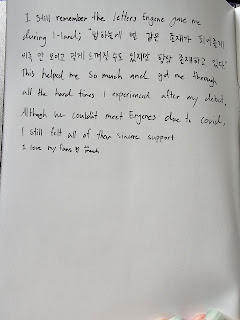 I still remember the letters Engene gave me
during I-land; "밤하늘에 별 같은 존재가 되어줄게
비록 안 보이고 멀게 느껴질 수도 있지만 항상 존재하고 있다"
This helped me so much and got me through
all the hard times I experienced after my debut.
Although we couldn't meet Engenes due to covid,
I still felt all of their sincere support
I love my fans so much